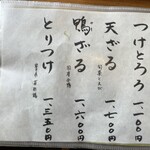 つけとろろ 一、一〇〇
天ざる 一、七〇〇
鴨ざる 一、六〇〇
とりつけ 一、三五〇